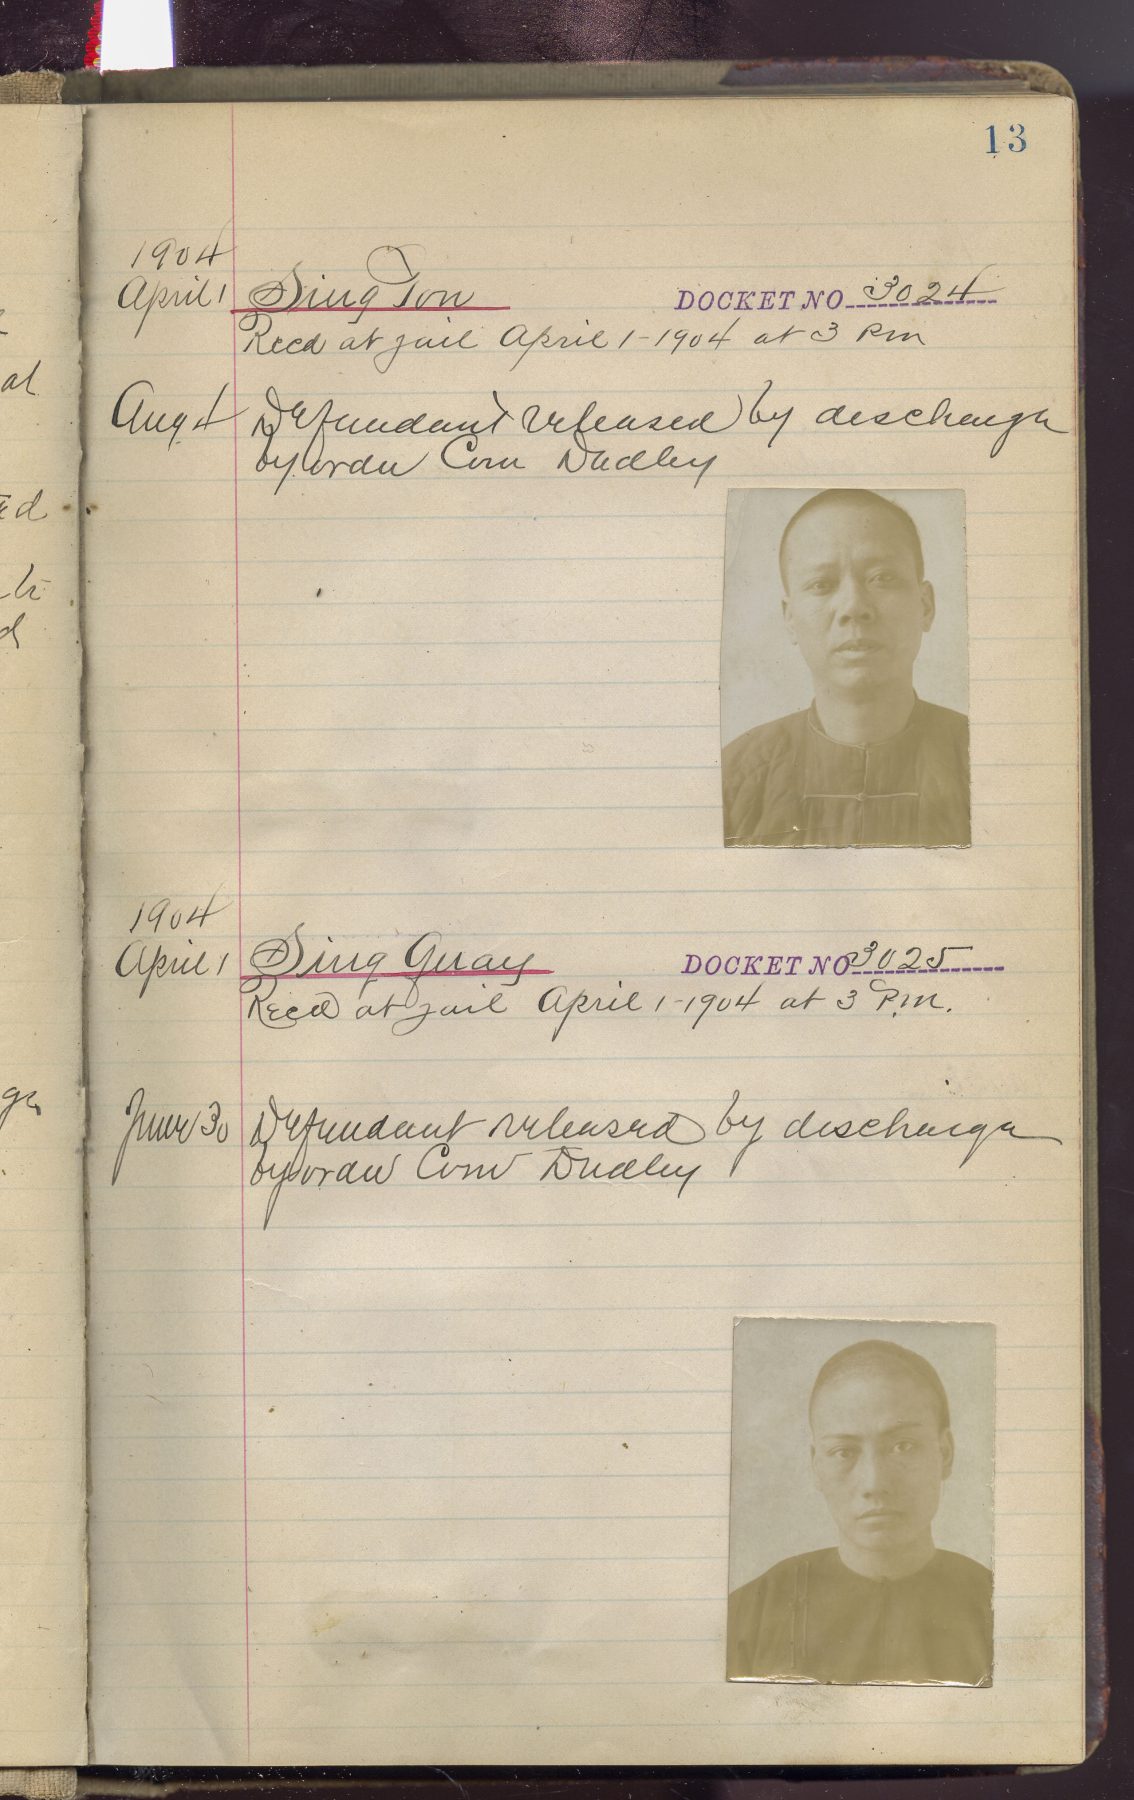 13
1904
April 1 Sing Ton DOCKET NO 3024
Recd at jail April 1-1904 at 3 Pm
Aug 4 Defendant released by discharge
by order Com Dudley
1904
April 1 Sing Quay DOCKET NO 3025
Recd at jail April 1-1904 at 3 P.m.
June 30 Defendant released by discharge
by order Com Dudley